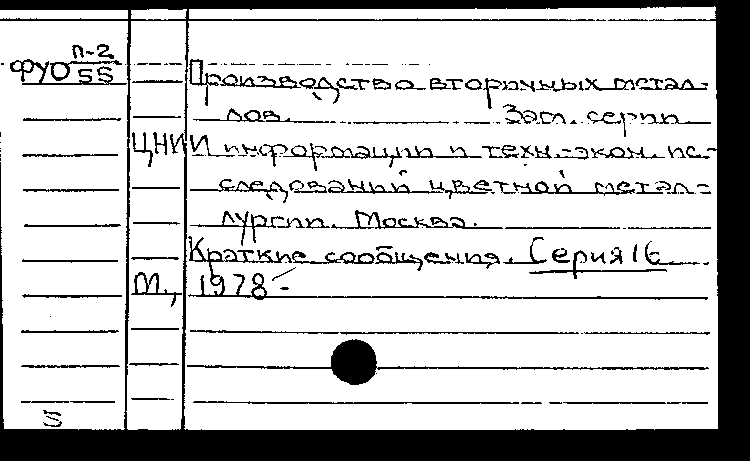 ФУО П-2/55
Производство вторичных метал-
лов. Загл. серии
ЦНИИ информации и техн.-экон. ис-
следований цветной метал-
лургии. Москва.
Краткие сообщения. Серия 16
М., 1978-
S